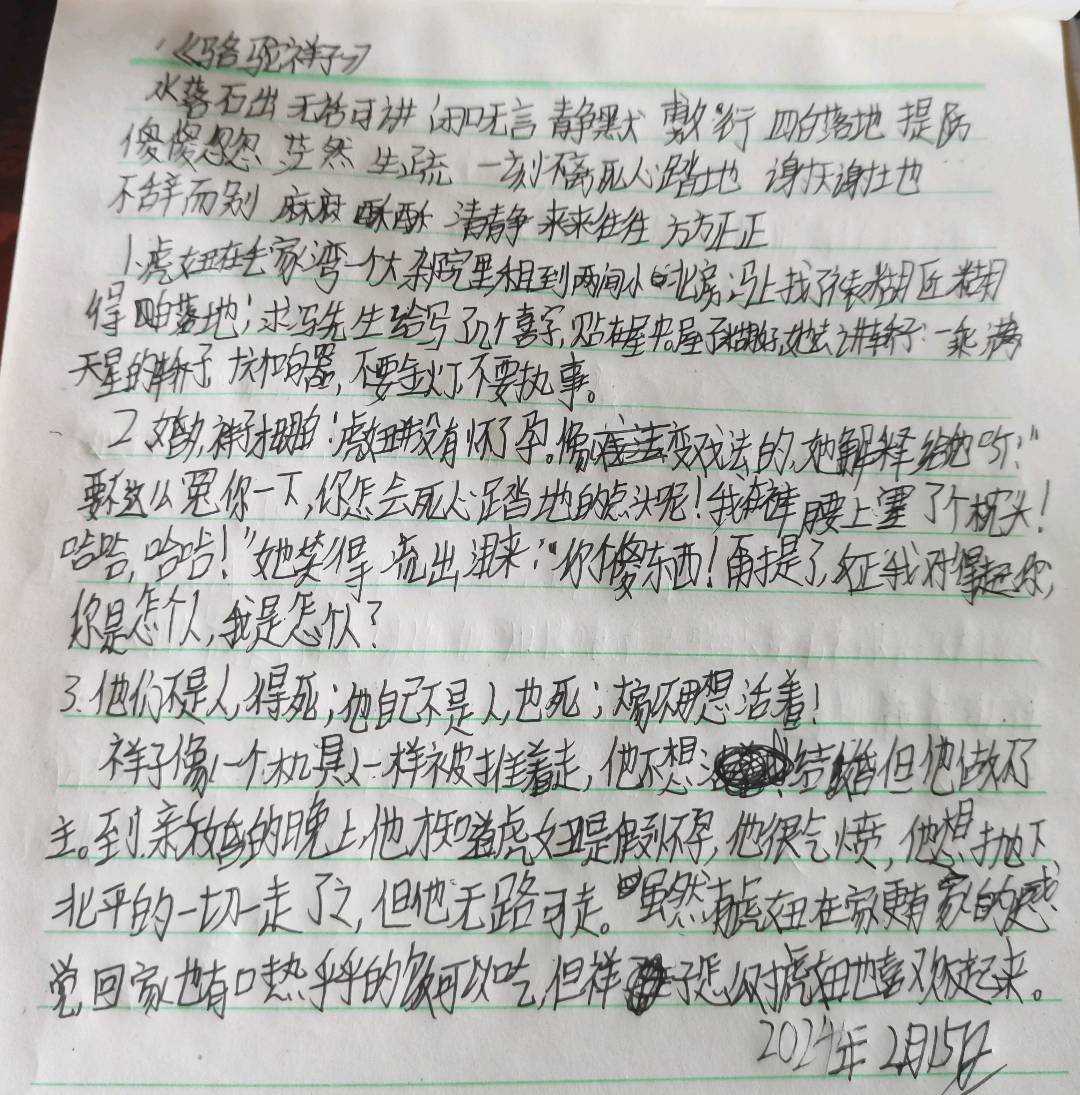 《骆驼祥子》
水落石出 无话可讲 闭口无言 静默 敷衍 四白落地 提防
傻傻忽忽 茫然 生疏 一刻不离 死心踏地 谢天谢地
不辞而别 麻麻酥酥 清静 来来往往 方方正正
1.虎妞在毛家湾一个大杂院里租到两间小北房;马上找了裱糊匠糊
得四白落地;求冯先生给写了几个喜字,贴在屋中。屋子糊好,她去讲轿子:一乘满
天星的轿子,十六个响器,不要金灯,不要执事。
2.婚夜,祥子才明白:虎妞并没有怀了孕。像变戏法的,她解释给他听:"
要不这么冤你一下,你怎会死心踏地的点头呢!我在裤腰上塞了个枕头!
哈哈,哈哈!"她笑得流出泪来:"你个傻东西!甭提了,反正我对得起你,
你是怎个人,我是怎个人?
3.他们不是人,得死;他自己不是人,也死;大家不用想活着!
祥子像一个机具一样被推着走,他不想结婚但他做不了
主。到亲放的晚上,他才知道虎妞是假怀孕,他很气愤,他想抛下
北平的一切一走了之,但他无路可走。虽然有虎妞在家更有家的感
觉,回家也有口热乎乎的饭可以吃,但祥子怎么对虎妞也喜欢不起来。
2024年2月15日